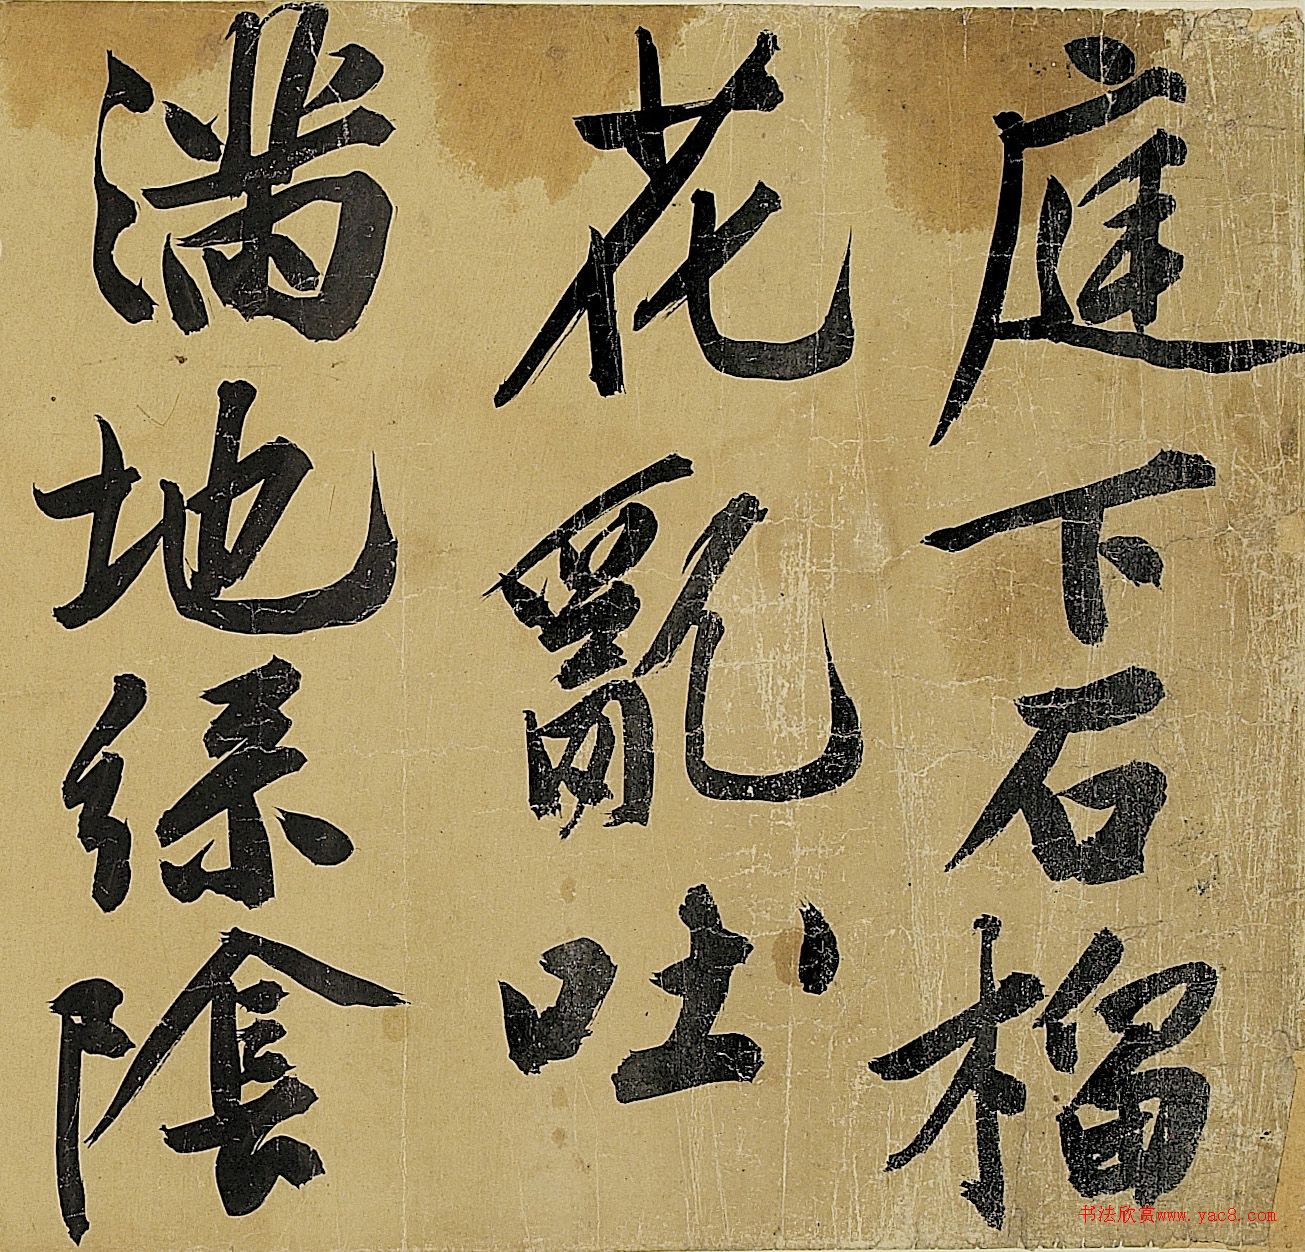 庭下石榴
花亂吐
滿地綠陰
书法欣赏www.yac8.com